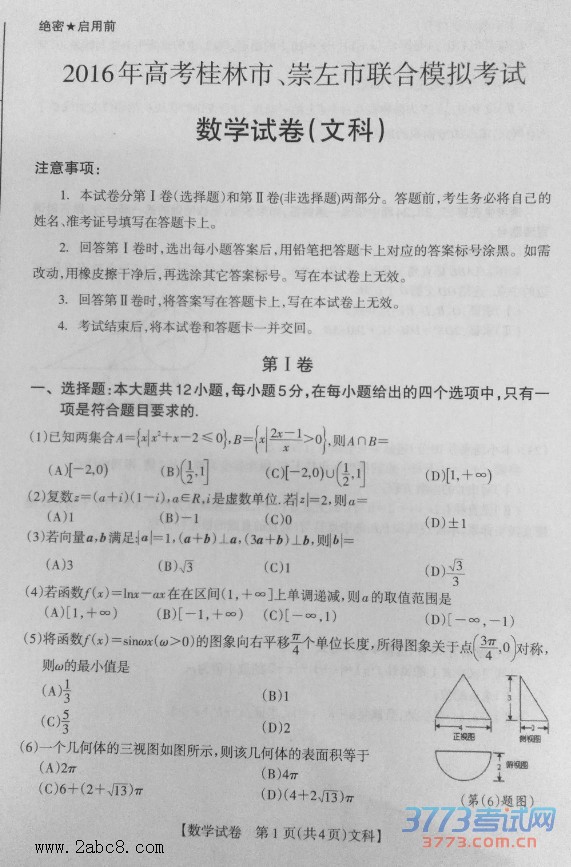 绝密★启用前
2016年高考桂林市、崇左市联合模拟考试
数学试卷(文科)
注意事项:
1. 本试卷分第Ⅰ卷(选择题)和第Ⅱ卷(非选择题)两部分。答题前,考生务必将自己的
姓名、准考证号填写在答题卡上。
2. 回答第Ⅰ卷时,选出每小题答案后,用铅笔把答题卡上对应的答案标号涂黑。如需
改动,用橡皮擦干净后,再选涂其它答案标号。写在本试卷上无效。
3. 回答第Ⅱ卷时,将答案写在答题卡上,写在本试卷上无效。
4. 考试结束后,将本试卷和答题卡一并交回。
第Ⅰ卷
一、选择题:本大题共12小题,每小题5分,在每小题给出的四个选项中,只有一
项是符合题目要求的.
(1)已知两集合A={x|x²+x-2≤0},B={x|(2x-1)/x>0},则A∩B=
(A)[-2,0) (B)(1/2,1] (C)[-2,0)∪(1/2,1] (D)[1,+∞)
(2)复数z=(a+i)(1-i),a∈R,i是虚数单位.若|z|=2,则a=
(A)1 (B)-1 (C)0 (D)±1
(3)若向量a,b满足:|a|=1,(a+b)⊥a,(3a+b)⊥b,则|b|=
(A)3 (B)√3 (C)1 (D)√3/3
(4)若函数f(x)=lnx-ax在在区间(1,+∞]上单调递减,则a的取值范围是
(A)[1,+∞) (B)[-1,+∞) (C)[-∞,1) (D)[-∞,-1)
(5)将函数f(x)=sinωx(ω>0)的图象向右平移π/4个单位长度,所得图象关于点(3π/4,0)对称,
则ω的最小值是
(A)1/3 (B)1
(C)5/3 (D)2
(6)一个几何体的三视图如图所示,则该几何体的表面积等于
(A)2π (B)4π
(C)6+(2+√13)π (D)(4+2√13)π
4
正视图
3
2
侧视图
2
俯视图
(第(6)题图)
【数学试卷 第1页(共4页)文科】
www.2abc8.com
3773考试网
3773.com.cn